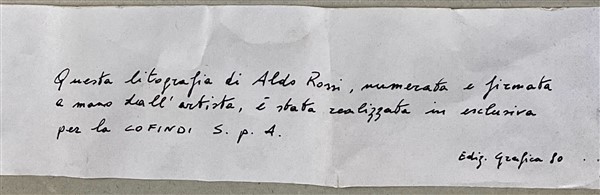 Questa litografia di Aldo Rossi, numerata e firmata
a mano dall'artista, è stata realizzata in esclusiva
per la COFINDI S. p. A.
Ediz. Grafica 80